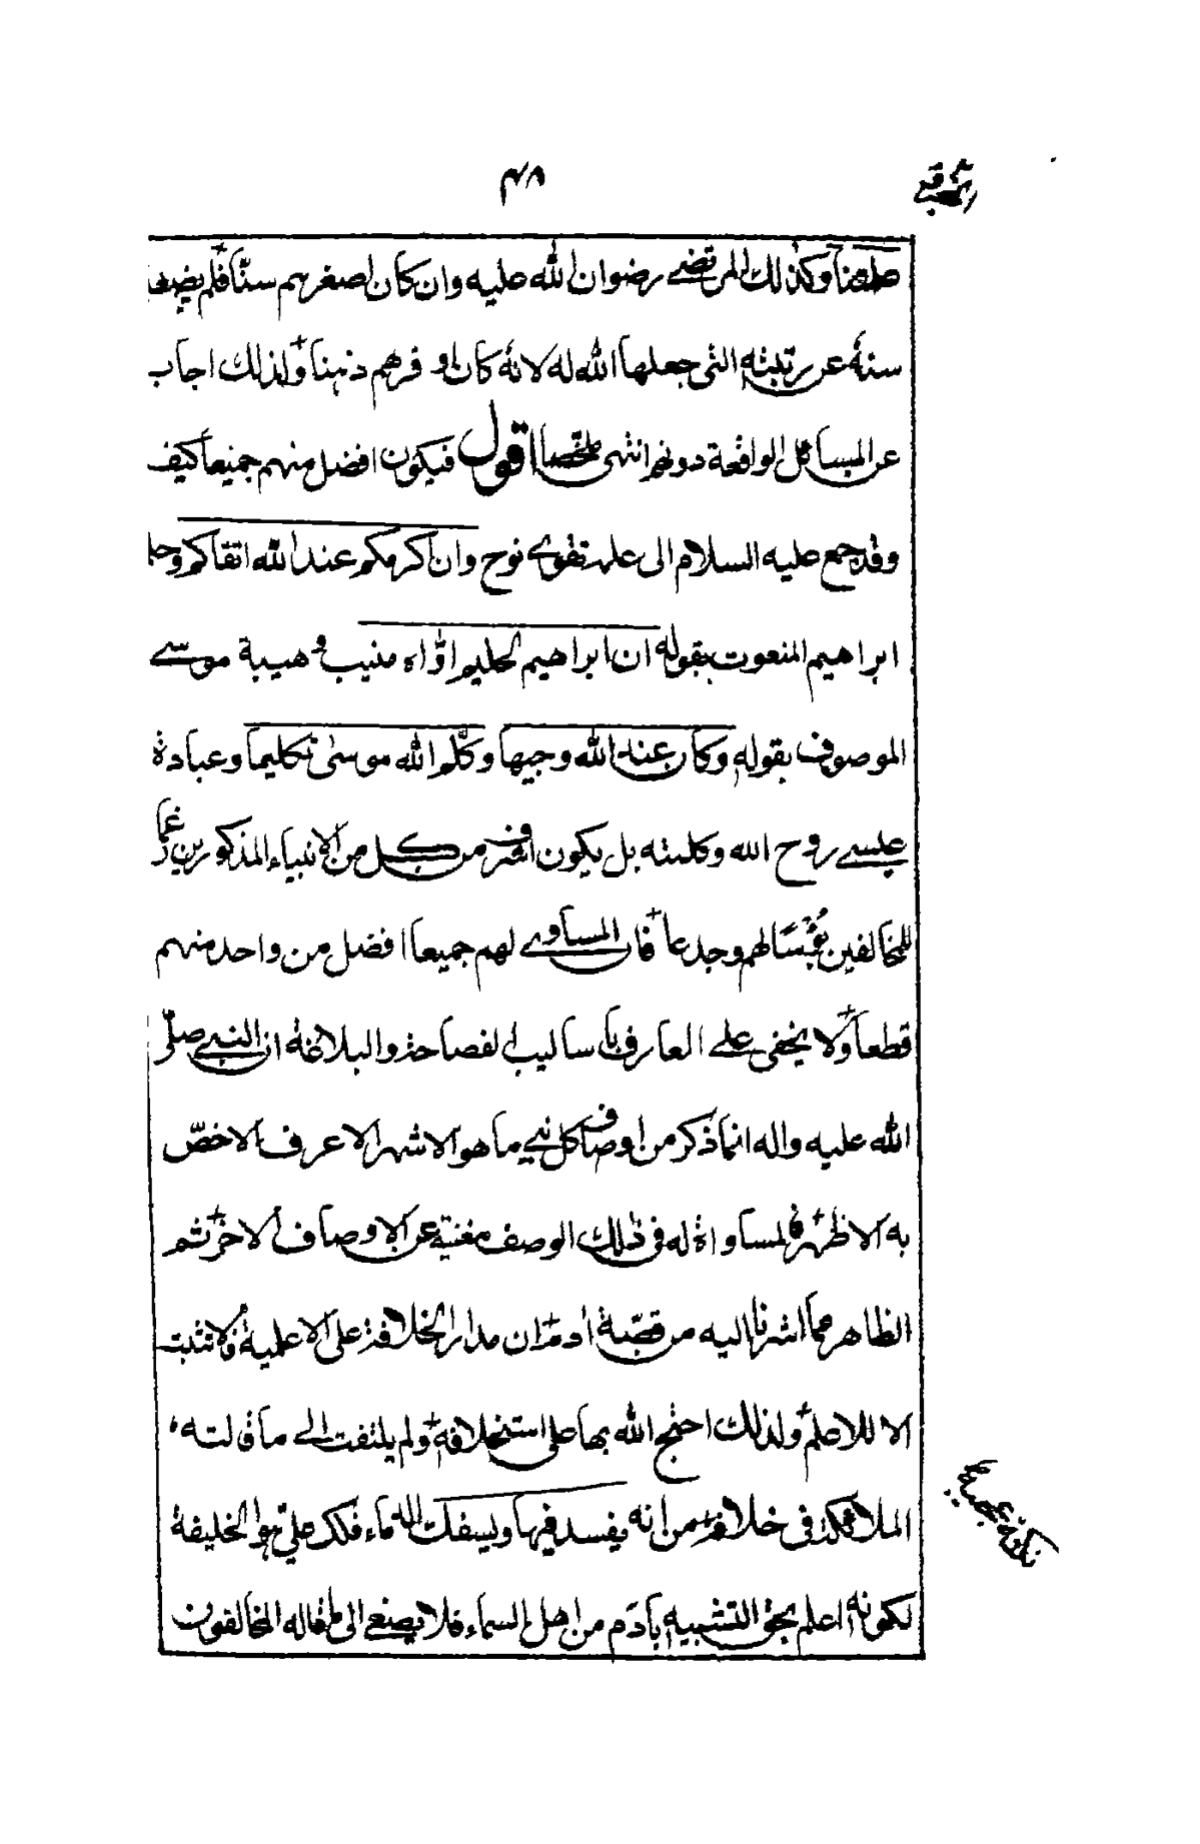 ٣٨
علمهنا وكذلك المرتضے رضوان الله عليه وان كان اصغرهم سنّا فلم يضعه
سنه عن رتبته التى جعلها الله له لانه كان اوفرهم ذهنا ولذلك اجاب
عن المسائل الواقعة دونهم انتهى ملخصا اقول فيكون افضل منهم جميعا كيف
وقد جمع عليه السلام الى علمه تقوى نوح وان اكرمكم عند الله اتقاكم وحلم
ابراهيم المنعوت بقوله ان ابراهيم لحليم اوّاه منيب و هيبة موسے
الموصوف بقوله وكان عند الله وجيها وكلّم الله موسىٰ تكليما وعبادة
عليسے روح الله وكلمته بل يكون اشرف من كل من الانبياء المذكورين رغما
للمخالفين تعْسًا لهم وجدعا فان المساوے لهم جميعا افضل من واحد منهم
قطعا ولا يخفى على العارف باساليب الفصاحة والبلاغة ان النبے صلّى
الله عليه واله انما ذكر من اوصاف كل نبے ما هو الاشهر الاعرف الاخصّ
به الاظهر فالمساواة له فى ذلك الوصف مغنية عن الاوصاف الاخر ثم
الظاهر مما اشرنا اليه من قصّة ادم ان مدار الخلافة على الاعلمية فلا تثبت
الا للاعلم ولذلك احتج الله بها على استخلافه ولم يلتفت الے ما قالته
الملائكة فى خلافته من انه يفسد فيها ويسفك الدماء فكذ علىّ هو الخليفة
لكونه اعلم بحق التشبيه بادَم من اهل السماء فلا يصغے الى ما قاله المخالفون